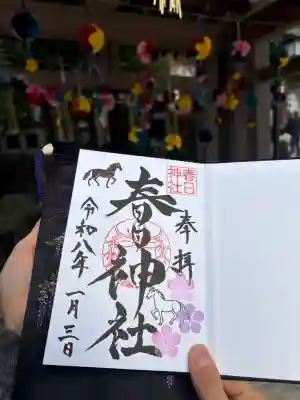 奉拝
春日
神社
春日神社
令和八年 一月三日